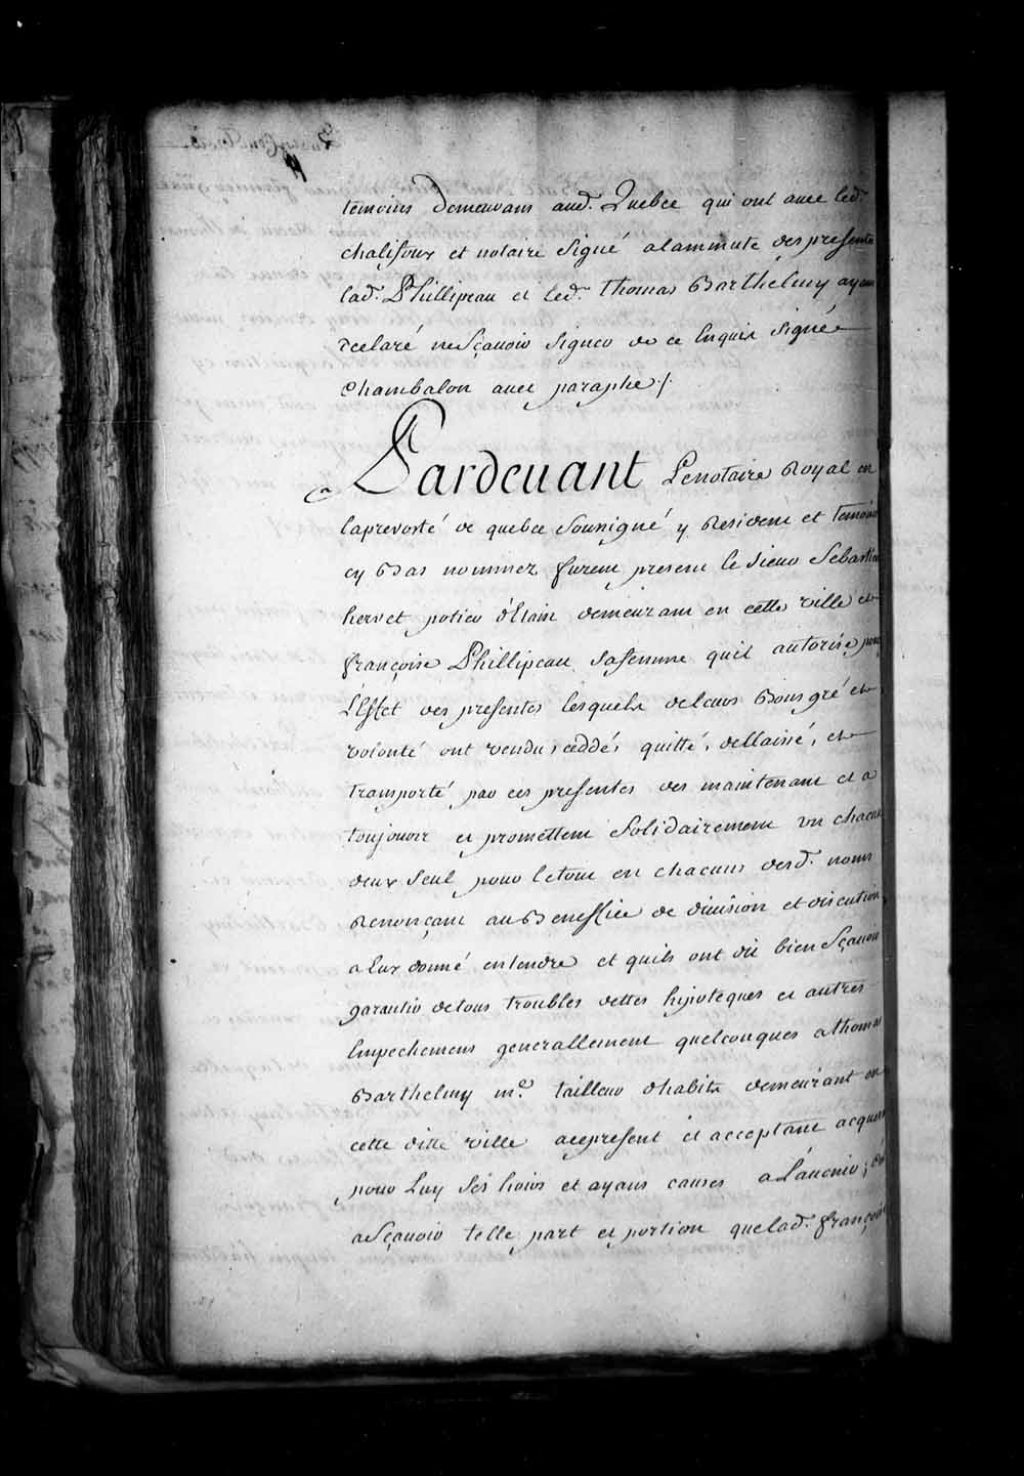 temoins demeurans aud. Quebec qui ont avec led.
chalifour et notaire Signé alaminute des presentes
lad. Phillipeau et led. thomas Barthelmy ayans
declaré neSçavoir Signer de ce Enquis Signé
Chambalon avec paraphe /.
Pardevant Lenotaire Royal en
laprevosté de quebec Sousigné y Resident et temoins
cy Bas nommez furent present le Sieur Sebastien
hervet potier d'Etain demeurant en cette ville et
françoise Phillipeau Safemme quil autorise pour
L'Effet des presentes lesquels deleurs Bons gré et
volonté ont vendu, ceddé, quitté, dellaissé, et
transporté par ces presentes des maintenant et a
toujours et promettent Solidairement un chacun
deux Seul pour letout en chacuns desd. noms
Renonçant auBeneffice de division et discution
a Eux donné entendre et quils ont dit bien Sçavoir
garantir detous troubles dettes hypoteques et autres
Empechemens generallement quelconques athomas
Barthelmy me. tailleur dhabits demeurant en
cette ditte ville acepresent et acceptant acquereur
pour Luy Ses hoirs et ayans causes a L'avenir;
aSçavoir telle part et portion quelad. françoise